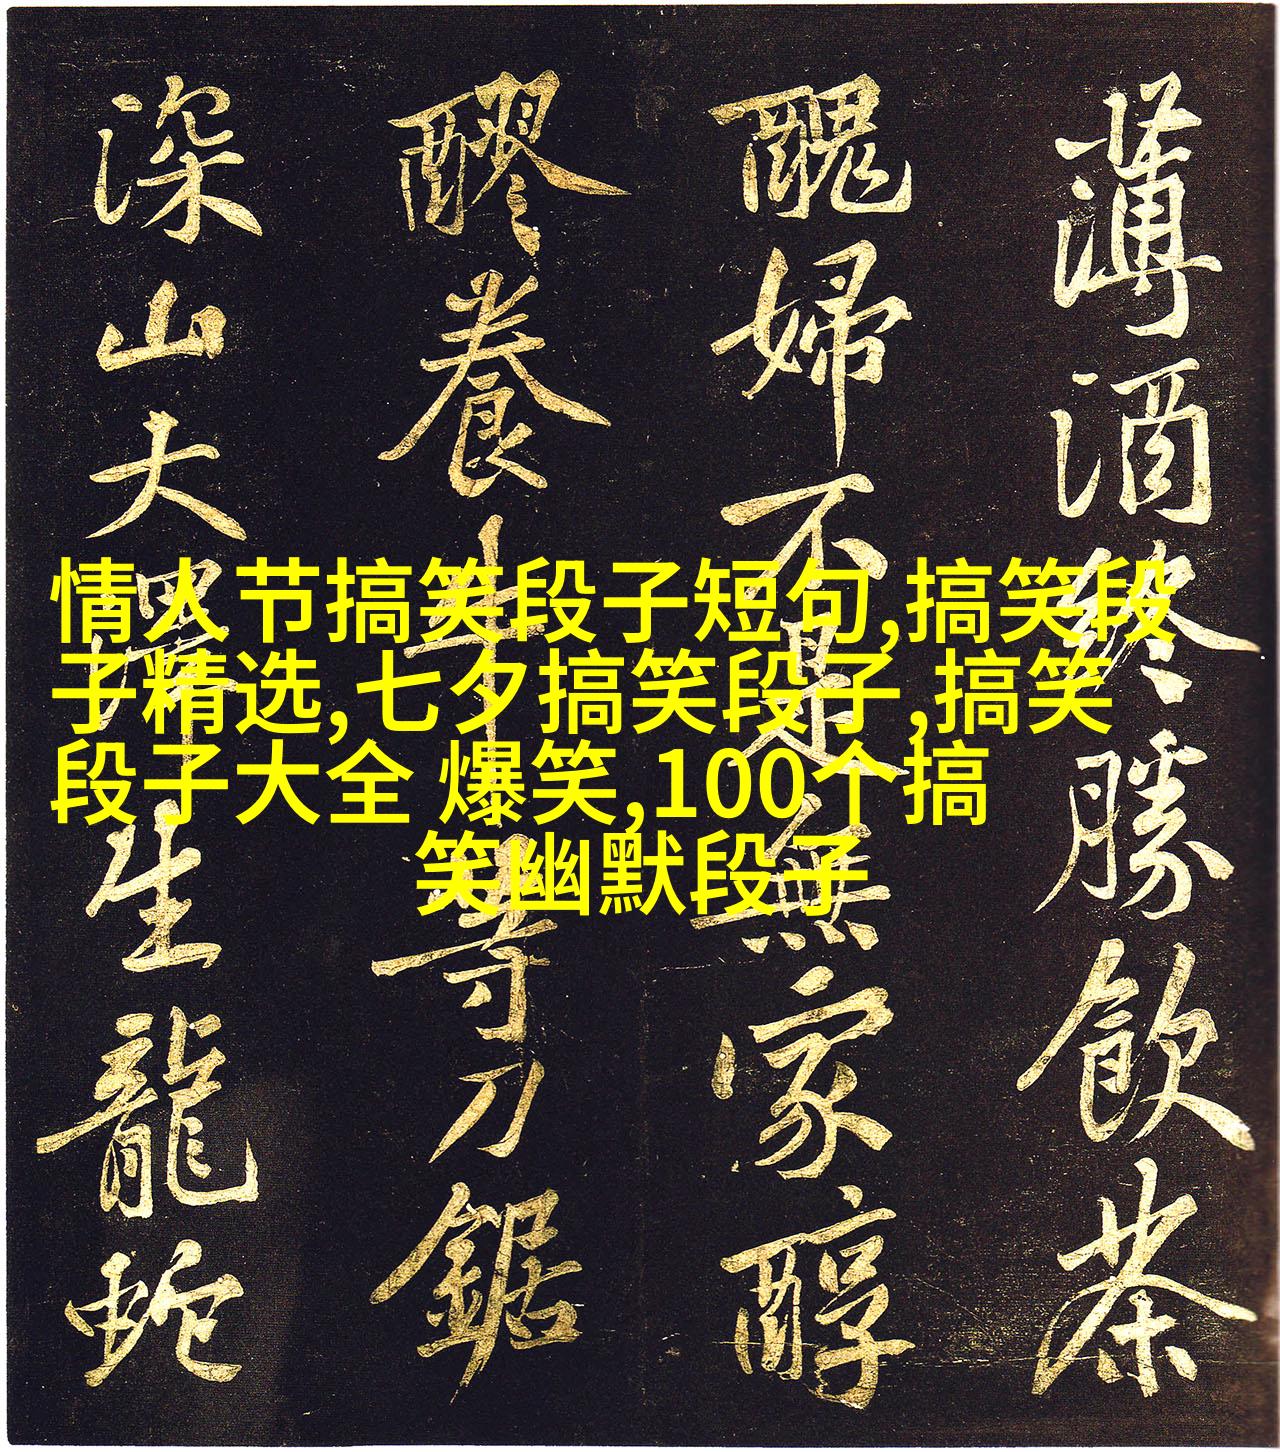 薄酒終勝飲茶
醜婦不是無家醇
醪養牛等刀鋸
深山大澤生龍蛇
情人节搞笑段子短句,搞笑段
子精选,七夕搞笑段子,搞笑
段子大全 爆笑,100个搞
笑幽默段子